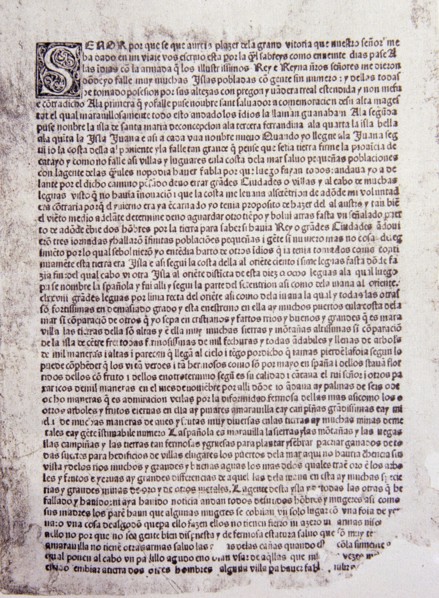 SEÑOR por que se que aureis plazer dela grand vitoria que nuestro señor me
ha dado en mi viaie vos escriuo esta por la ql sabreys como en ueinte dias pase A
las idias cō la armada q̄ los illustrissimos Rey e Reyna ñros señores me dieron
dōde yo falle muy muchas Islas pobladas cō gente sin numero : y dellas todas
he tomado posesion por sus altezas con pregon y uādera real estendida y non me fu
e cōtradicho Ala primera q̄ yo falle puse nombre sant saluador a comemoracion desu alta mages
tat el qual marauillosamente todo esto andado los idios la llaman guanahani Ala segūda
puse nombre la isla de santa maria deconcepcion ala tercera ferrandina ala quarta la isla bella
ala quita la Isla Juana e asi a cada vna nombre nueuo Quando yo llegue ala Juana seg
ui io la costa della al poniente y la falle tan grande q̄ pense que seria tierra firme la prouicia de
catayo y como no falle asi villas y luguares enla costa dela mar saluo pequeñas poblaciones
con lagente delas quales nopodia hauer fabla por que luego fuyan todos: andaua yo a de
lante por el dicho camino pēsādo deno errar grādes Ciudades o villas y al cabo de muchas
leguas visto q̄ no hauia inouaciō i que la costa me leuaua alsetētriō de adōde mi voluntad
era cōtraria porq̄ el yuierno era ya ēcarnado yo tenia proposito de hazer del al austro y tan biē
el viēto medio adelāte determine deno aguardar otro tiēpo y bolui atras fasta vn señalado puer
to de adōde ēbie dos hōbres por la tierra para saber si hauia Rey o grādes Ciudades ādoui
erō tres iornadas yhallarō īfinitas poblaciōes pequeñas i gēte sī numero mas no cosa de reg
imiēto por lo qual seboluierō yo entēdia harto de otros idios q̄ ia tenia tomados como conti
nuamēte esta tierra era Isla e asi segui la costa della al oriēte ciento i siete leguas fasta dōde fa
zia fin del qual cabo vi otra Isla al oriēte disticta de esta diez o ocho leguas ala qual luego
puse nombre la spañola y fui alli y segui la parte del setentrion asi como dela iuana al oriente.
clxxviii grādes leguas por linia recta del oriēte asi como dela iuana la qual y todas las otras
sō fortissimas en demasiado grado y esta enestremo en ella ay muchos puertos enla costa dela
mar si cōparaciō de otros q̄ yo sepa en cristianos y fartos rrios y buenos y grandes q̄ es mara
villa las tierras della sō altas y ē ella muy muchas sierras y mōtañas altissimas si cōparaciō
de la isla de cētre frei todas fermosissimas de mil fechuras y todas ādabiles y llenas de arbols
de mil maneras i altas i parecen q̄ llegā al cielo i tēgo por dicho q̄ iamas pierdē lafoia segun lo
puede cōphēder q̄ los vi tā verdes i tā hermosos como sō por mayo en spaña i dellos stauā flor
ridos dellos cō fruto i dellos enotrotermino segū es su calidad i cātaua el rui señor i otros pa
xaricos demil maneras en el mes de nouiēbre por alli dōde io ādaua ay palmas de seis ode
ocho maneras q̄ es admiracion verlas por la diformidad fermosa dellas mas asicomo los o
otros arboles y frutos eieruas en ella ay pinares amarauilla eay canpiñas grādissimas eay mi
el i de muchas maneras de aues y frutas muy diuersas enlas tierras ay muchas minas deme
tales eay gēte istimabile numero La spañola es marauilla lasierras ylas mōtañas y las uegas
ilas campiñas y las tierras tan fermosas ygruesas para plantar ysēbrar pacriar ganados deto
das suertes para hedificios de villas elugares los puertos dela mar aqui no hauria chrencia sin
vista ydelos rios muchos y grandes y buenas aguas los mas delos quales traē oro ē los arbo
les y frutos e yeruas ay grandes differencias de aquel las dela iuana en esta ay muchas specie
rias y grandes minas de oro y de otros metales. La gente desta ysla ytodas las otras q̄ he
fallado y hauido: ni aya hauido noticia andan todos desnudos hōbres y mugeres asi como
sus madres los parē haun que algunas mugeres se cobian vn solo lugar cō vna foia de yer
ua: o vna cosa dealgodō quepa ello fazen ellos no tienen fierro ni azero ni armas niso
nello no por que no sea gente bien dispuesta y de fermosa estatura saluo que sō muy te
amarauilla no tienē otras armas saluo las as delas cañas quando cō cōla simiente a
qual ponen al cabo vn pa illo agudo eno usan vsar de aquellas que m vezes me
embiar atierra dos otres hombres alguna villa pa hauer fabl